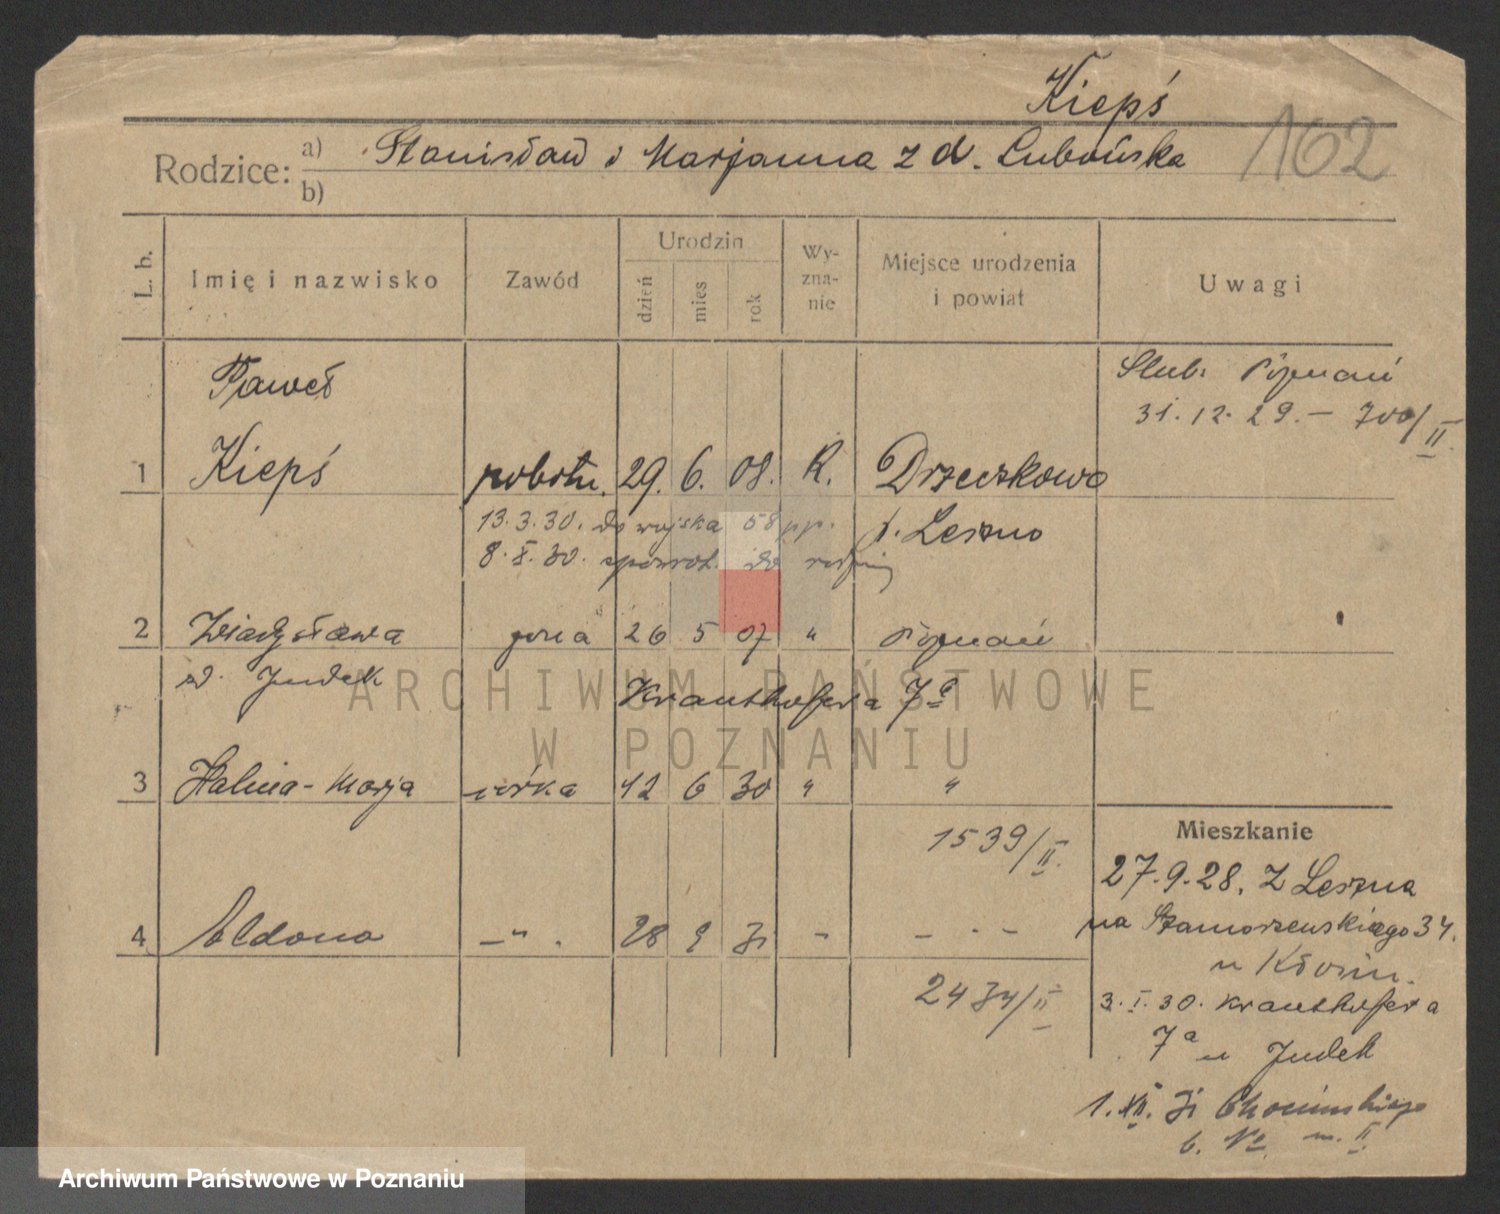 Kiepś
162
Rodzice: a) Stanisław i Marjanna z d. Lubońska
b)
L. b.
Imię i nazwisko
Zawód
Urodzin
dzień
mies
rok
Wy-
zna-
nie
Miejsce urodzenia
i powiat
Uwagi
Paweł
Ślub: Poznań
31.12.29. – 700/II
1 Kiepś robotn. 29. 6. 08. R. Drzeczkowo
13.3.30. do wojska 58 pp. p. Leszno
8.X.30. spowrot. do rodziny
2 Władysława żona 26 5 07 " Poznań
d. Judek
Krauthofera 7a
ARCHIWUM PAŃSTWOWE
W POZNANIU
3 Halina-Marja córka 12 6 30 " "
1539/II.
Mieszkanie
27.9.28. z Leszna
na Szamarzewskiego 34.
u
4 Aldona –"– . 28 9 31 – – · –
2434/II
3.I.30. Krauthofera
7a u Judek
1.XII. 31
6. m. II
Archiwum Państwowe w Poznaniu